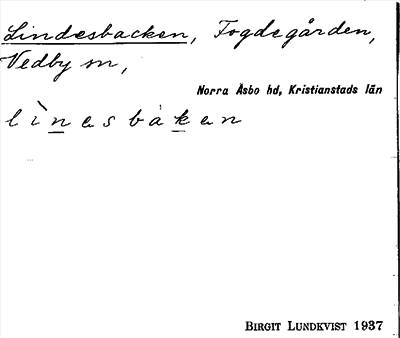 Lindesbacken, Fogdegården,
Vedby sn,
Norra Åsbo hd, Kristianstads län
lìnesbàken
BIRGIT LUNDKVIST 1937